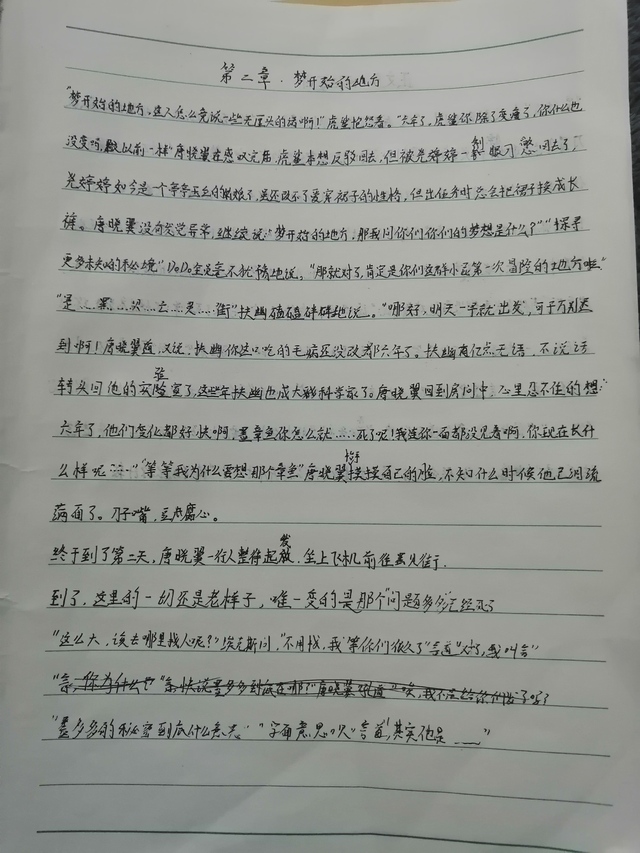 第二章·梦开始的地方
"梦开始的地方,这人怎么竟说一些无厘头的话啊!"虎鲨抱怨着。"六年了,虎鲨你除了变瘦了,你什么也
没变吗,跟以前一样"唐晓翼在感叹完后,虎鲨本想反驳回去,但被尧婷婷一个眼刀憋回去了,
尧婷婷如今是一个亭亭玉立的姑娘了,虽还改不了爱穿裙子的性格,但出任务时总会把裙子换成长
裤。唐晓翼没有发觉异常,继续说:"梦开始的地方,那我问你们你们的梦想是什么?""探寻
更多未知的秘境"DoDo全是毫不犹豫地说。"那就对了,肯定是你们这群小孩第一次冒险的地方啦"
"是……黑……贝……云……灵……街"扶幽磕磕碎碎地说。"哪好,明天一早就出发",可千万别迟
到啊!唐晓翼道,又说,扶幽你这口吃的毛病还没改都六年了。扶幽有亿点无语,不说话
转头回他的实验室了,这些年扶幽也成大科学家了。唐晓翼回到房间中,心里忍不住的想:
六年了,他们变化都好快啊,墨章鱼你怎么就……死了呢!我连你一面都没见着啊,你现在长什
么样呢……"等等我为什么要想那个章鱼"唐晓翼揉揉自己的脸,不知什么时候他已泪流
满面了。刀子嘴,豆腐心。
终于到了第二天,唐晓翼一行人整待起发,坐上飞机前往
到了,这里的一切还是老样子,唯一变的是那个"问题多多"已经死了
"这么大,该去哪里找人呢?"埃克斯问,"不用找,我等你们很久了""对了,我叫言"
"墨多多的秘密到底什么意思""字面意思呗",其实他是……"